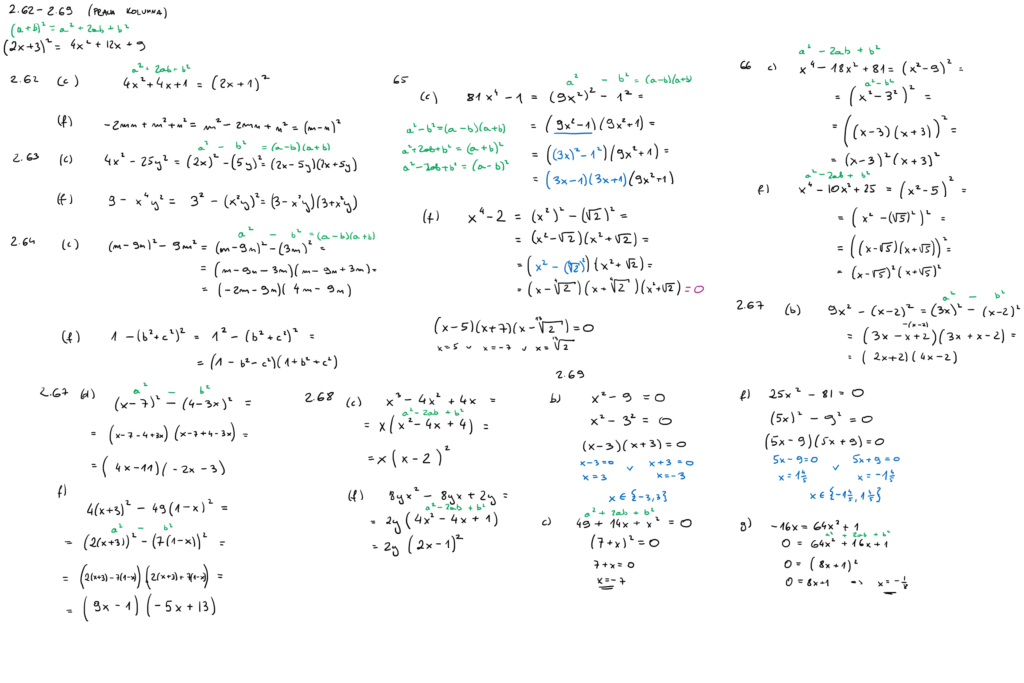 2.62 - 2.69 (PRAWA KOLUMNA)
(a+b)² = a² + 2ab + b²
(2x+3)² = 4x² + 12x + 9
a² + 2ab + b²
2.62 (c) 4x² + 4x + 1 = (2x+1)²
(f) -2mn + m² + n² = m² - 2mn + n² = (m-n)²
a² - b² = (a-b)(a+b)
2.63 (c) 4x² - 25y² = (2x)² - (5y)² = (2x-5y)(2x+5y)
(f) 9 - x⁴y² = 3² - (x²y)² = (3-x²y)(3+x²y)
a² - b² = (a-b)(a+b)
2.64 (c) (m-9n)² - 9m² = (m-9n)² - (3m)² =
= (m-9n-3m)(m-9n+3m) =
= (-2m-9n)(4m-9n)
(f) 1 - (b²+c²)² = 1² - (b²+c²)² =
= (1-b²-c²)(1+b²+c²)
65
a² - b² = (a-b)(a+b)
(c) 81x⁴ - 1 = (9x²)² - 1² =
a²-b² = (a-b)(a+b)
a²+2ab+b² = (a+b)²
a²-2ab+b² = (a-b)²
= (9x²-1)(9x²+1) =
= ((3x)²-1²)(9x²+1) =
= (3x-1)(3x+1)(9x²+1)
(f) x⁴ - 2 = (x²)² - (√2)² =
= (x²-√2)(x²+√2) =
= (x² - (∜2)²)(x²+√2) =
= (x-∜2)(x+∜2)(x²+√2) = 0
(x-5)(x+7)(x-¹³√2) = 0
x=5 ∨ x=-7 ∨ x=¹³√2
a² - 2ab + b²
66 c) x⁴ - 18x² + 81 = (x²-9)² =
a² - b²
= (x²-3²)² =
= ((x-3)(x+3))² =
= (x-3)²(x+3)²
a² - 2ab + b²
f) x⁴ - 10x² + 25 = (x²-5)² =
= (x² - (√5)²)² =
= ((x-√5)(x+√5))² =
= (x-√5)²(x+√5)²
a² - b²
2.67 (b) 9x² - (x-2)² = (3x)² - (x-2)²
-(x-2)
= (3x-x+2)(3x+x-2) =
= (2x+2)(4x-2)
a² - b²
2.67 (d) (x-7)² - (4-3x)² =
= (x-7-4+3x)(x-7+4-3x) =
= (4x-11)(-2x-3)
f)
4(x+3)² - 49(1-x)² =
a² - b²
= (2(x+3))² - (7(1-x))² =
= (2(x+3)-7(1-x))(2(x+3)+7(1-x)) =
= (9x-1)(-5x+13)
2.68 (c) x³ - 4x² + 4x =
a² - 2ab + b²
= x(x²-4x+4) =
= x(x-2)²
(f) 8yx² - 8yx + 2y =
a² - 2ab + b²
= 2y(4x²-4x+1)
= 2y(2x-1)²
2.69
b) x² - 9 = 0
x² - 3² = 0
(x-3)(x+3) = 0
x-3=0 ∨ x+3=0
x=3 x=-3
x∈{-3,3}
a² + 2ab + b²
c) 49 + 14x + x² = 0
(7+x)² = 0
7+x=0
x=-7
f) 25x² - 81 = 0
(5x)² - 9² = 0
(5x-9)(5x+9) = 0
5x-9=0 ∨ 5x+9=0
x=1⅘ x=-1⅘
x∈{-1⅘, 1⅘}
g) -16x = 64x² + 1
a² + 2ab + b²
0 = 64x² + 16x + 1
0 = (8x+1)²
0 = 8x+1 => x = -⅛